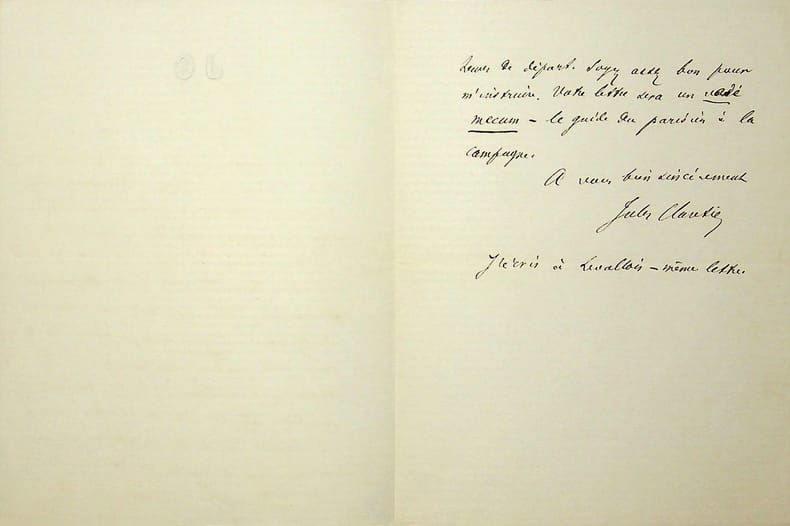 heures de départ. Soyez assez bon pour
m'instruire. Votre lettre sera un vade
mecum – le guide du parisien à la
campagne.
A vous bien sincèrement
Jules Claretie
J'écris à Levallois – même lettre.